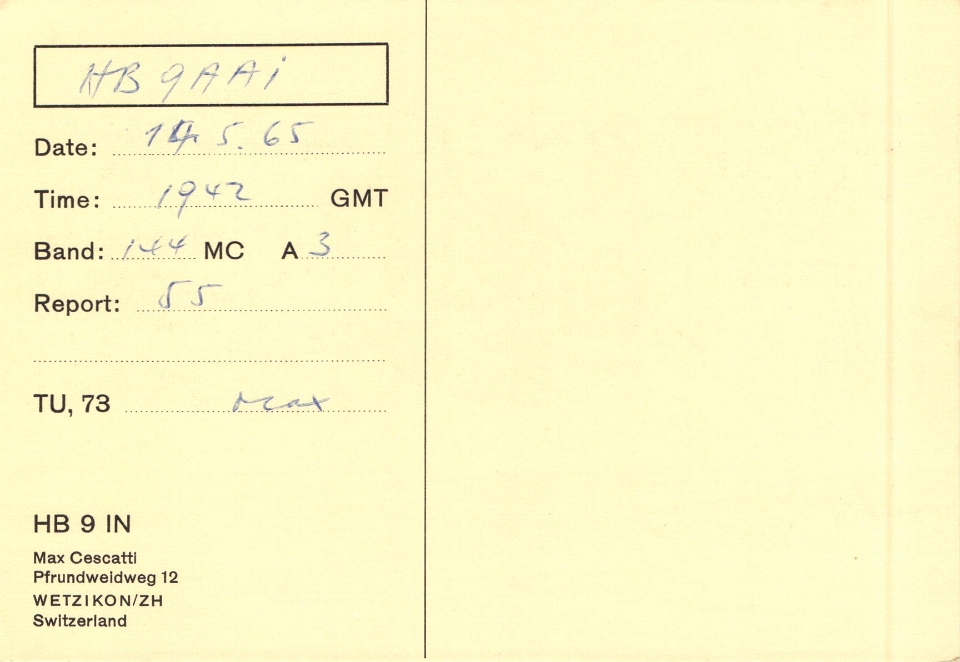 HB9AAi
Date: 14 5. 65
Time: 1942 GMT
Band: 144 MC A 3
Report: 55
TU, 73 Max
HB 9 IN
Max Cescatti
Pfrundweidweg 12
WETZIKON/ZH
Switzerland